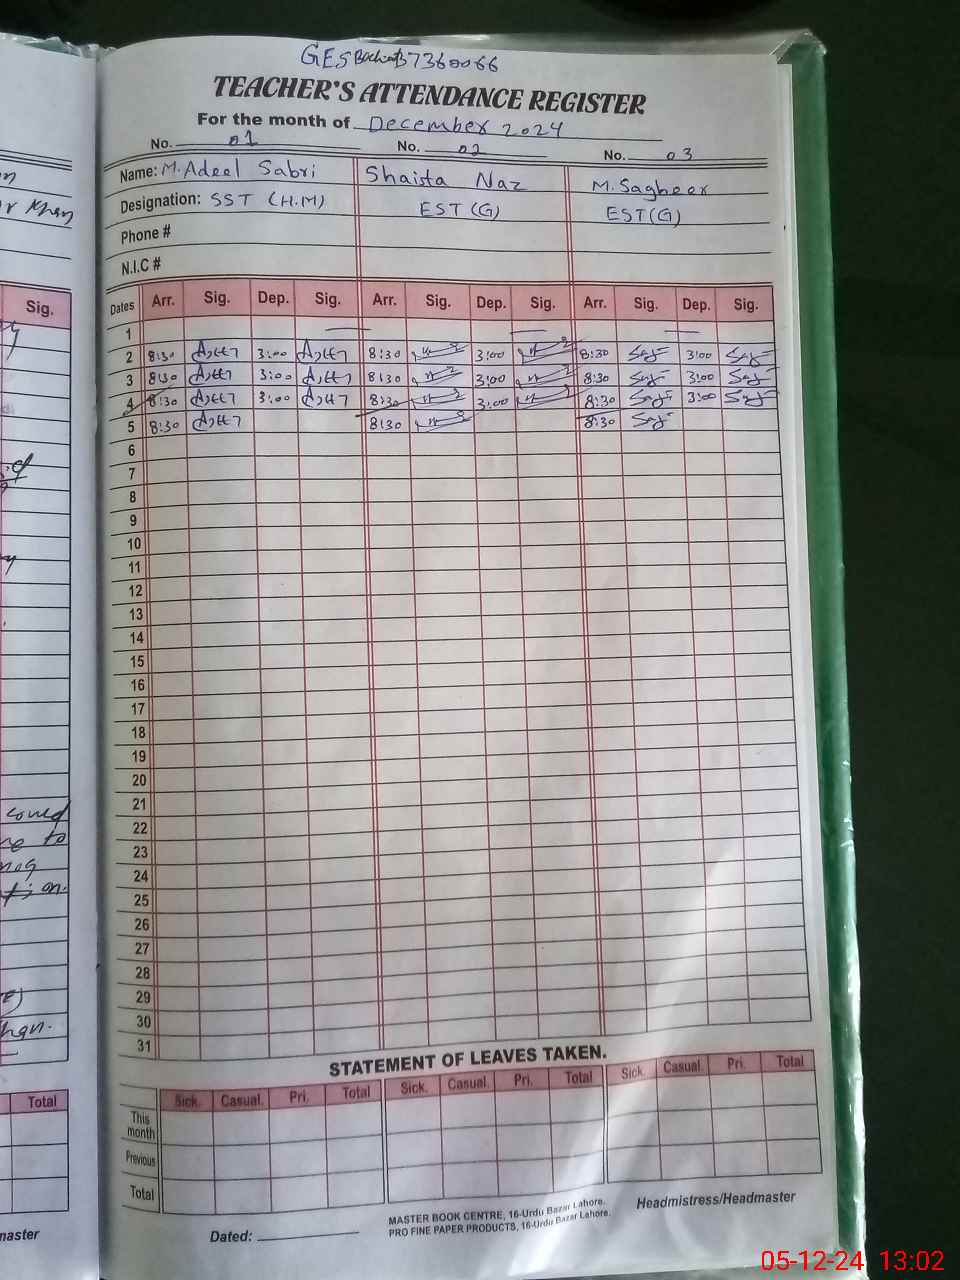 GES 37360066
TEACHER'S ATTENDANCE REGISTER
For the month of December 2024
No. 01 No. 02 No. 03
Name: M. Adeel Sabri Shaista Naz M. Sagheer
Designation: SST (H.M) EST (G) EST (G)
Phone #
N.I.C #
Dates Arr. Sig. Dep. Sig. Arr. Sig. Dep. Sig. Arr. Sig. Dep. Sig.
1
2 8:30 3:00 8:30 3:00 8:30 3:00
3 8:30 3:00 8:30 3:00 8:30 3:00
4 8:30 3:00 8:30 3:00 8:30 3:00
5 8:30 8:30 8:30
6
7
8
9
10
11
12
13
14
15
16
17
18
19
20
21
22
23
24
25
26
27
28
29
30
31
STATEMENT OF LEAVES TAKEN.
Sick. Casual. Pri. Total Sick. Casual. Pri. Total Sick. Casual. Pri. Total
This month
Previous
Total
Dated:
MASTER BOOK CENTRE, 16-Urdu Bazar Lahore.
PRO FINE PAPER PRODUCTS, 16-Urdu Bazar Lahore.
Headmistress/Headmaster
Sig.
could
to
Total
05-12-24 13:02